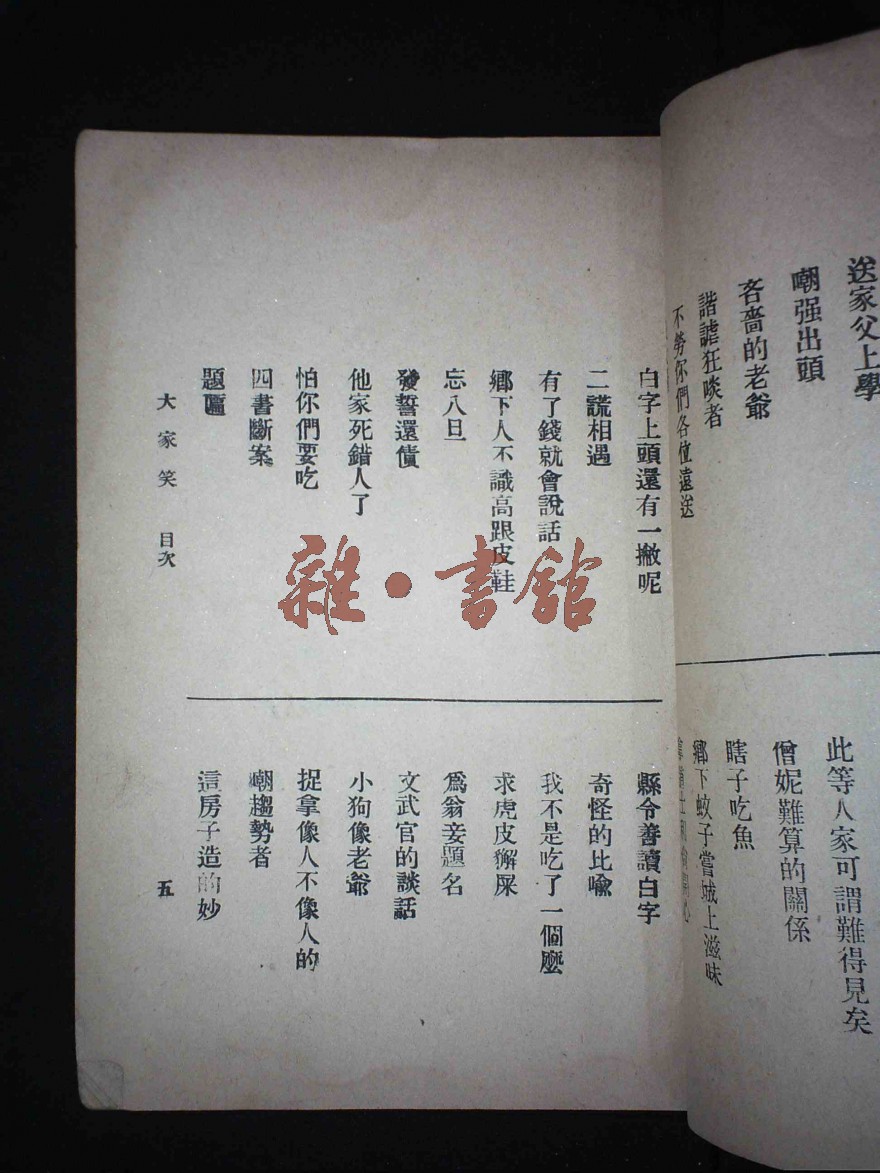 送家父上學
嘲强出頭
吝嗇的老爺
諧謔狂啖者
不勞你們各位遠送
此等人家可謂難得見矣
僧妮難算的關係
瞎子吃魚
鄉下蚊子嘗城上滋味
白字上頭還有一撇呢
二謊相遇
有了錢就會說話
鄉下人不識高跟皮鞋
忘八旦
發誓還債
他家死錯人了
怕你們要吃
四書斷案
題匾
縣令善讀白字
奇怪的比喻
我不是吃了一個麽
求虎皮獬屎
爲翁妾題名
文武官的談話
小狗像老爺
捉拿像人不像人的
嘲趨勢者
這房子造的妙
大家笑 目次
五
雜·書館